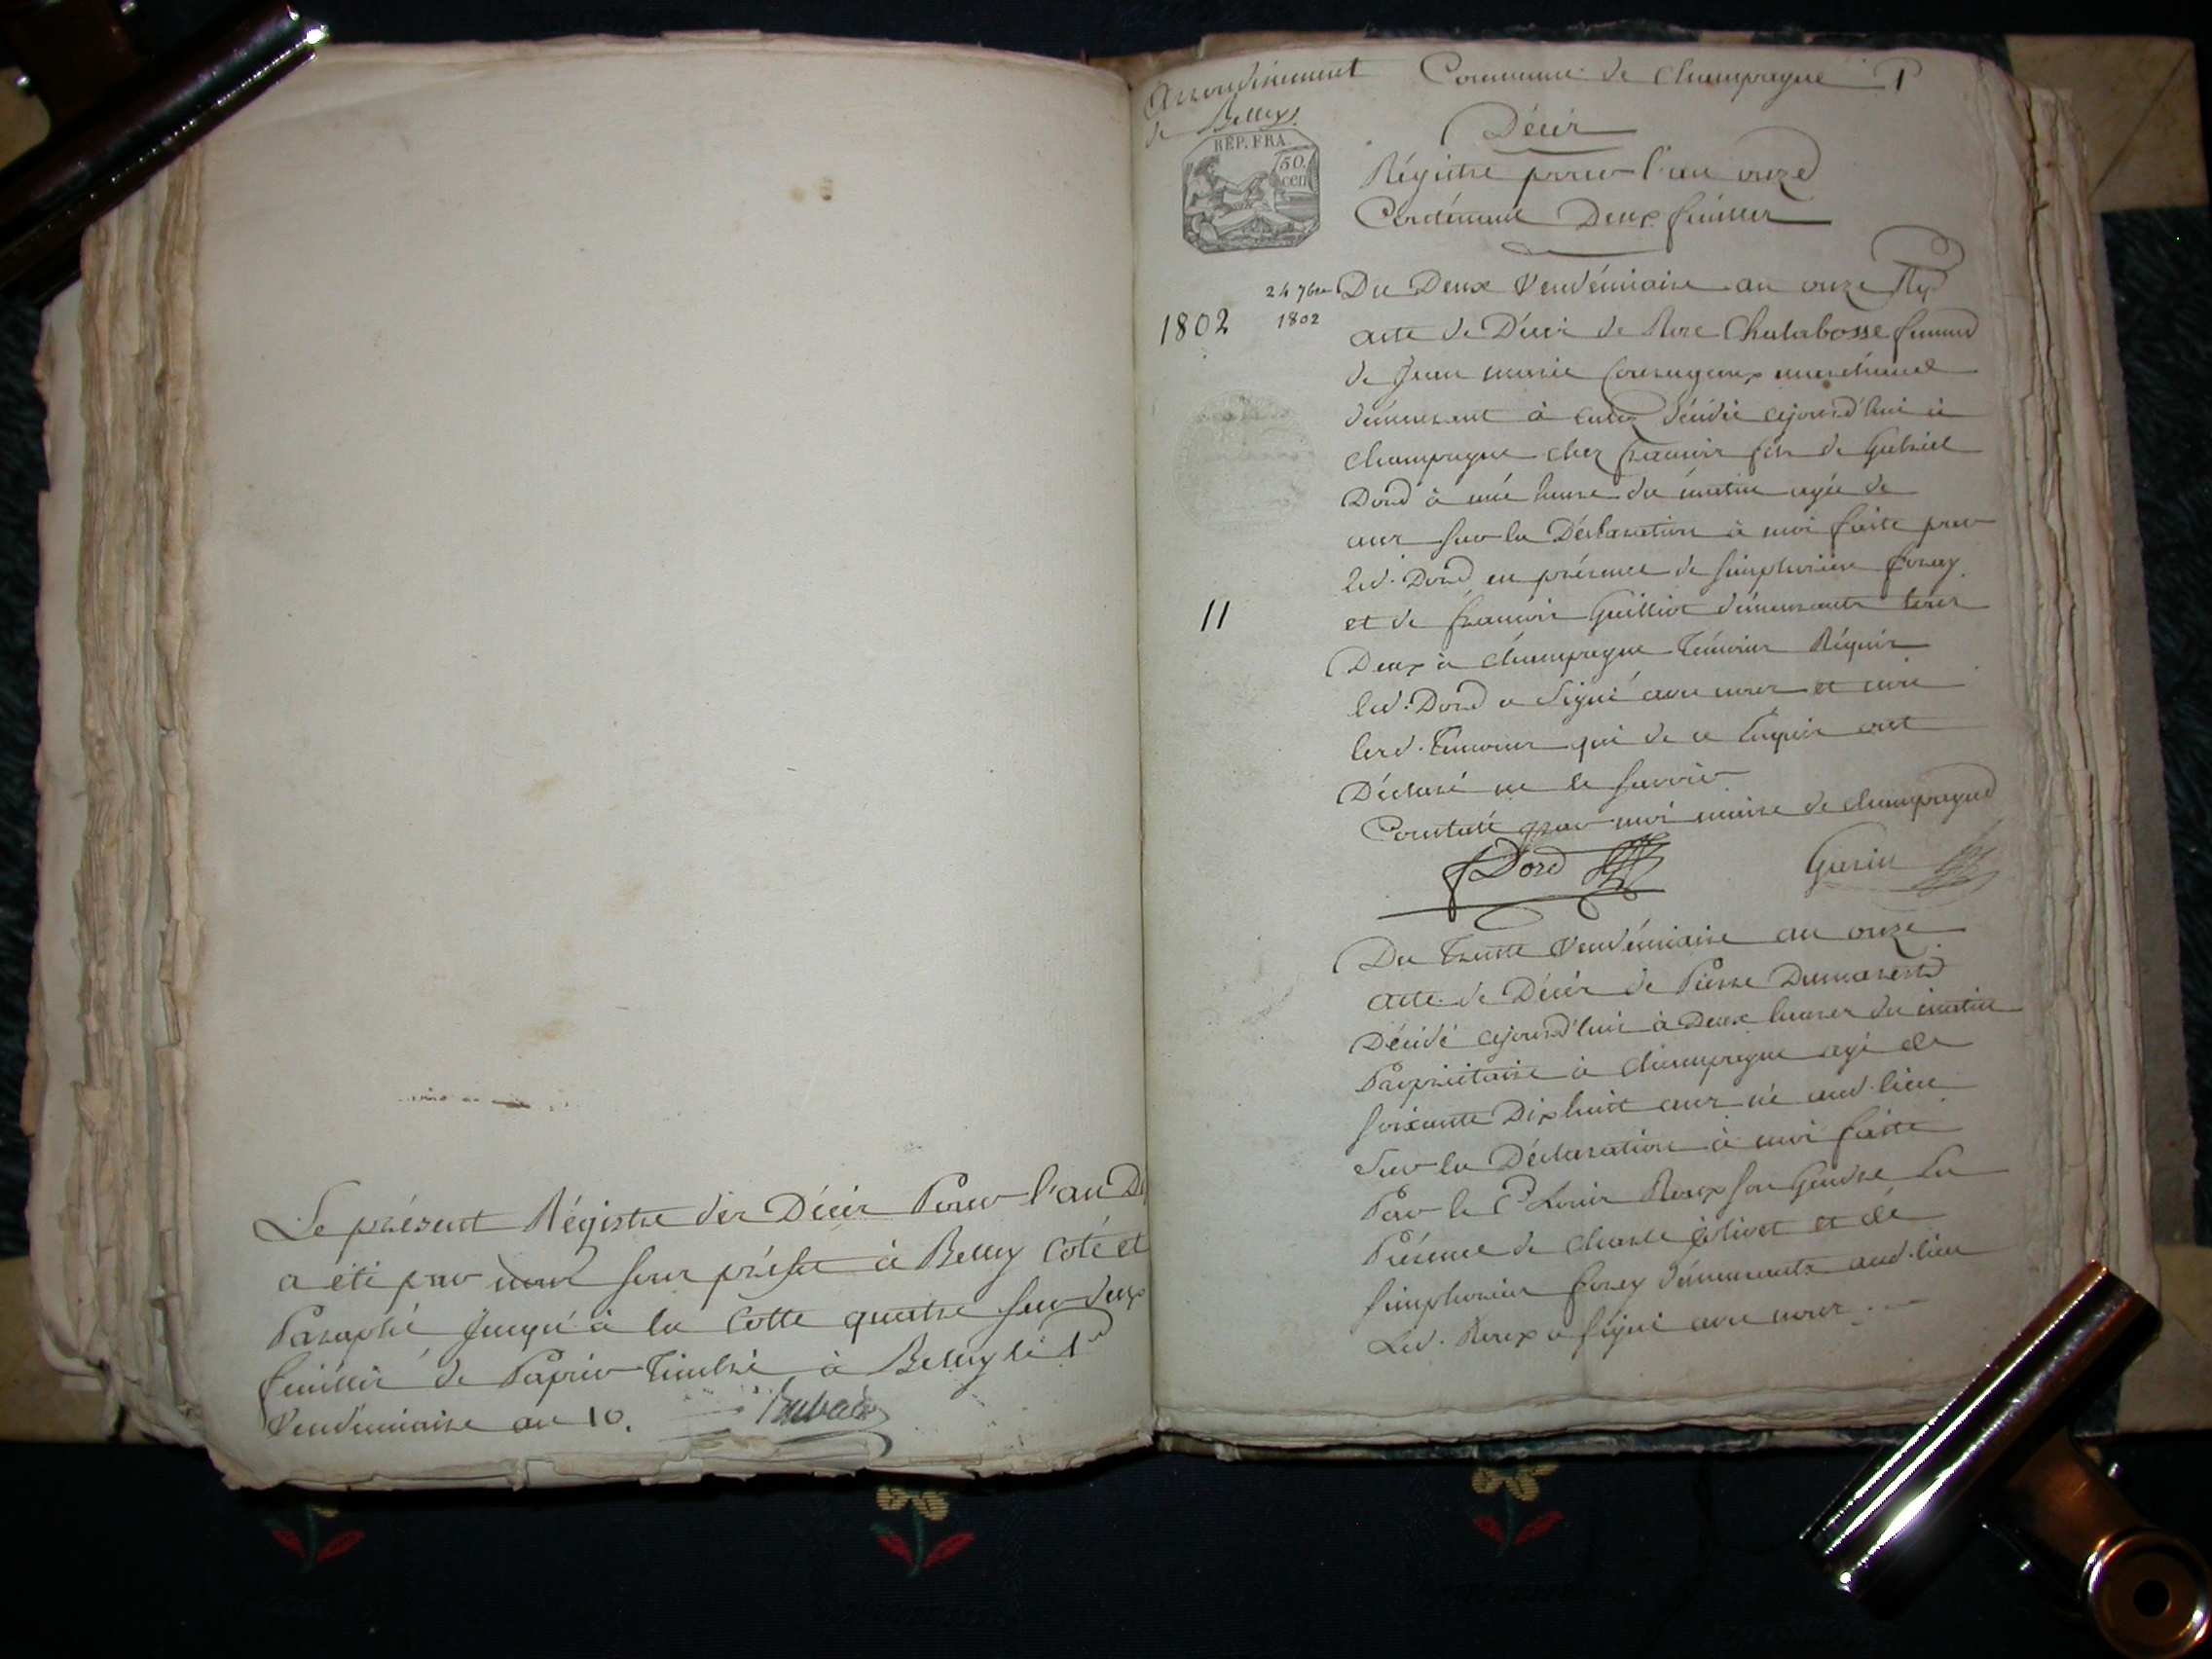 Le présent Régistre des Décès Pour l'an D
a été par nous sous préfet à Belley Coté et
Paraphé jusqu'à la Cotte quatre sur deux
feuilles de Papier Timbré à Belley le 1er
Vendémiaire an 10.
Arrondissement
de Belley.
Commune de Champagne
RÉP. FRA.
50.
cen
Décès
Régistre pour l'an onze
Contenant Deux feuilles
1802
24 7bre
1802
11
Du Deux Vendémiaire an onze Rep
acte de Décès de Rose Chalabosse femme
de Jean marie marchand
demeurant à décédée ajourd'hui à
Champagne chez francois fils de Gabriel
Dord à une heure du matin agée de
ans sur la Déclaration à moi faite par
led. Dord en présence de simphorien forey
et de francois Guilliot démeurants tous
Deux à Champagne Témoins Réquis
led. Dord a signé avec nous et non
lesd. Temoins qui de ce Enquis ont
Déclaré ne le savoir
Constaté par moi maire de Champagne
Dord
Gurin
Du Trente Vendémiaire an onze
acte de Décès de Pierre Dumarest
Décédé ajourd'hui à Deux heures du matin
Propriétaire à Champagne agé de
soixante Dixhuit ans né aud. lieu
sur la Déclaration à moi faite
Par le C. Louis Roux son Gendre En
Présence de Charle et de
simphorien forey démeurants aud. lieu
Led. Roux a signé avec nous.